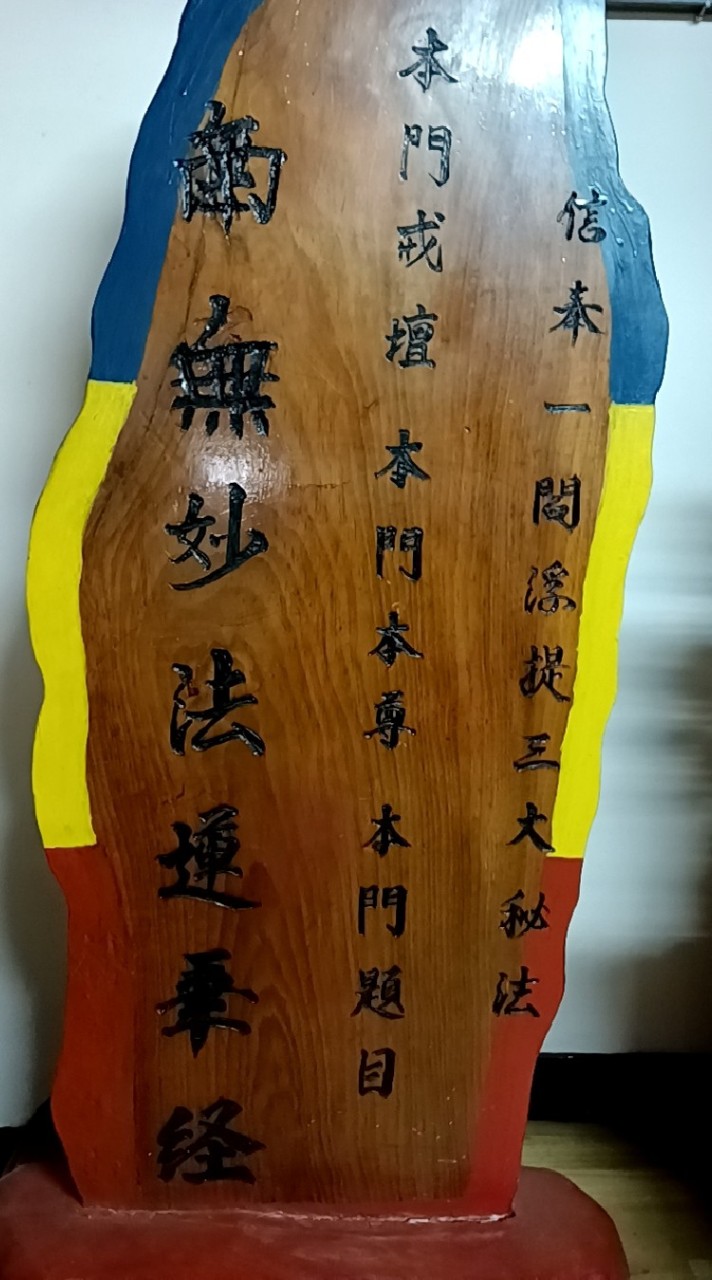 信奉一閻浮提三大秘法
本門戒壇 本門本尊 本門題目
南無妙法蓮華経